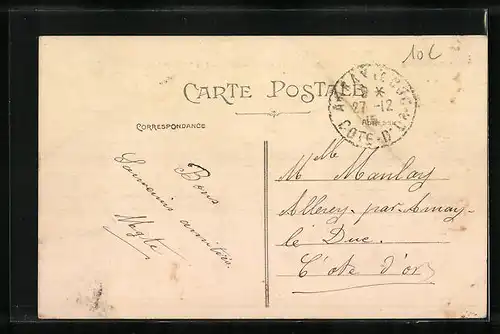 10L
CARTE POSTALE
ARNAY LE DUC
8 *
27 -12
15
COTE-D'OR
ADRESSE
CORRESPONDANCE
Bons
Souvenirs amitiés.
Mgte
Mme Manlay
Allerey-par-Arnay-
le Duc.
Côte d'or